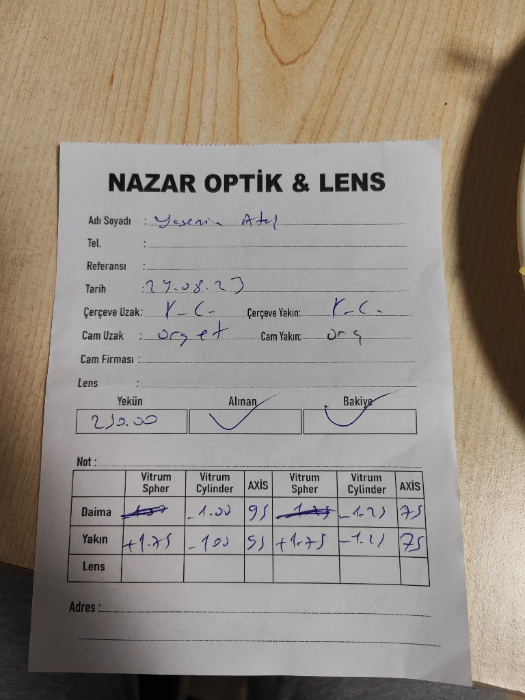 NAZAR OPTİK & LENS
Adı Soyadı :
Tel. :
Referansı :
Tarih : 29.08.23
Çerçeve Uzak: K-C- Çerçeve Yakın: K-C-
Cam Uzak : org et Cam Yakın: org
Cam Firması :
Lens :
Yekün Alınan Bakiye
250.00
Not :
Vitrum Spher Vitrum Cylinder AXİS Vitrum Spher Vitrum Cylinder AXİS
Daima -1.00 95 -1.25 75
Yakın +1.75 -1.00 95 +1.75 -1.25 75
Lens
Adres :